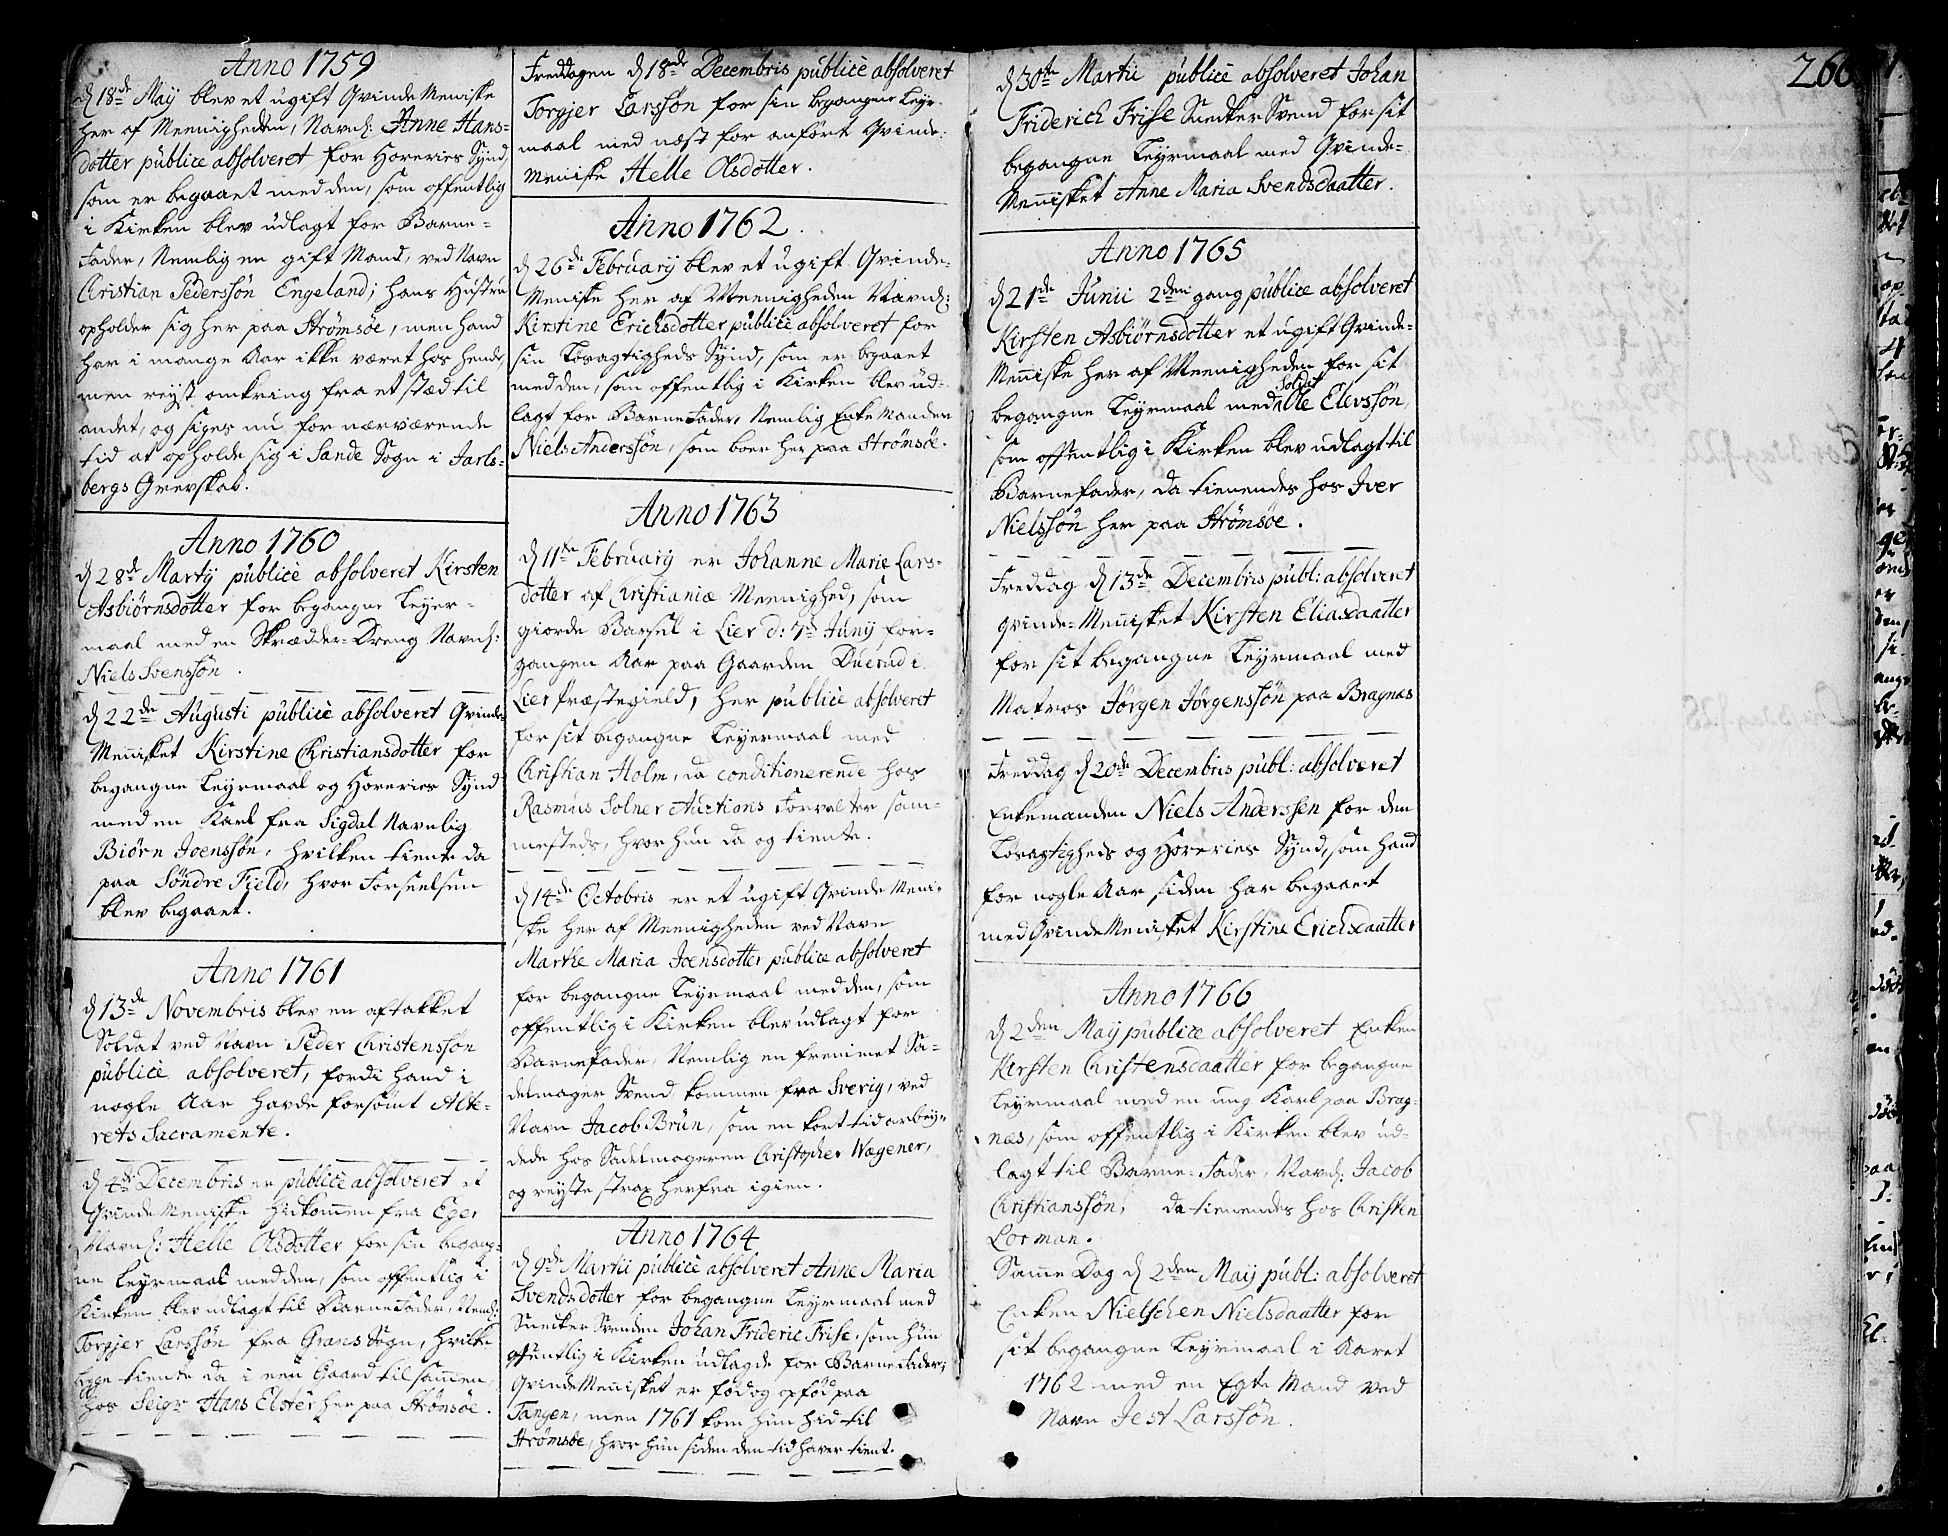 Anno 1759
d 18de Maij blev et ugift Qvinde Meniske
her af Meenigheden, Navnl: Anne Hans=
dotter publice absolveret for Horeries Synd,
som er begaaet med den, som offentlig
i Kirken blev udlagt for Barne=
Fader, Nemlig en gift Mand, ved Navn
Christian Pederssøn Engeland; hans Hustru
opholder sig her paa Strømsøe, men hand
har i mange Aar ikke været hos hende,
men reyst omkring fra et stæd til
andet, og siges nu for nærværende
tid at opholde sig i Sande Sogn i Jarls=
bergs Grevskab.
Anno 1760
d 28de Martij publicè absolveret Kirsten
Asbiørnsdotter for begangne Leyer=
maal med en Skrædder=Dreng Navnl:
Niels Svenssøn.
d 22de Augusti publicè absolveret Qvinde
Mennisket Kirstine Christiansdotter for
begangne Leyrmaal og Horeries Synd
med en Karl fra Sigdal Navnlig
Biørn Joenssøn, hvilken tiente da
paa Søndre Field, hvor Forseelsen
blev begaaet.
Anno 1761
d 13de Novembris blev en aftakket
Soldat ved Navn Peder Christenssøn
publicè absolveret, fordi hand i
nogle Aar havde forsømt Alte=
rets Sacramente.
d 4de Decembris er publicè absolveret et
Qvinde Meniske hidkommen fra Eger
Navnl: Helle Olsdotter for sin begang=
ne Leyrmaal med den, som offentlig i
Kirken blev udlagt til Barne Fader, Neml:
Torgjer Larssøn fra Grans Sogn, hvilke
begge tiente da i een Gaard tilsammen,
hos Seigr Hans Elster her paa Strømsøe.
Freddagen d 18de Decembris publicè absolveret
Torgjer Larssøn for sin begangne Leyr=
maal med næst for anførte Qvinde=
Meniske Helle Olsdotter.
Anno 1762.
d 26de Februarij blev et ugift Qvinde=
Meniske her af Meenigheden Navnl:
Kirstine Erichsdotter publicè absolveret for
sin Løsagtigheds Synd, som er begaaet
med den, som offentlig i Kirken blev ud=
lagt for Barne Fader, Nemlig Enke Manden
Niels Anderssøn, som boer her paa Strømsøe.
Anno 1763
d 11te Februarij er Johanne Marie Lars=
dotter af Christianiæ Meenighed, som
giorde Barsel i Lier d: 7de Junij for=
gangen Aar paa Gaarden Duerud i
Lier Præstegield, her publicè absolveret
for sit begangne Leyermaal med
Christian Holm, da conditionerende hos
Rasmus Solner Auctions Forvalter sam=
mesteds, hvor hun da og tiente.
d 14de Octobris er et ugift Qvinde Meni=
ske her af Meenigheden ved Navn
Marthe Maria Joensdotter publice absolveret
for begangne Leyrmaal med den, som
offentlig i Kirken blev udlagt for
Barnefader, Nemlig en fremmet Sa=
delmager Svend kommen fra Sverig, ved
Navn Jacob Brün, som en kort tid arbey=
dede hos Sadelmageren Christopher Wagener,
og reyste strax herfra igien.
Anno 1764
d 9de Martii publicè absolveret Anne Maria
Svendsdotter for begangne Leyrmaal med
Snecker Svenden Johan Frideric Frise, som hun
offentlig i Kirken udlagde for Barne Fader;
Qvinde Mennisket er fød og opfød paa
Tangen, men 1761 kom hun hid til
Strømsøe, hvor hun siden den tid haver tient.
260
d 30te Martii publicè absolveret Johan
Friderich Frise Snecker Svend for sit
begangne Leyrmaal med Qvinde=
Mennisket Anne Maria Svendsdaatter.
Anno 1765
d 21de Junii 2den gang publice absolveret
Kirsten Asbiørnsdotter et ugift Qvinde=
Menniske her af Meenigheden for sit
begangne Leyrmaal med Soldat Ole Elevssøn,
som offentlig i Kirken blev udlagt til
Barnefader, da tienendes hos Iver
Nielssøn her paa Strømsøe.
Freddag d 13de Decembris publ: absolveret
qvinde=Mennisket Kirsten Eliasdaatter
for sit begangne Leyrmaal med
Matros Jørgen Jørgenssøn paa Bragnæs
Freddag d 20de Decembris publ: absolveret
Enkemanden Niels Anderssen for den
Løsagtigheds og Horeries Synd, som hand
for nogle Aar siden har begaaet
med Qvinde Menisket Kirstine Erichsdaatter
Anno 1766
d 2den Maij publice absolveret Enken
Kirsten Christensdaatter for begangne
Leyrmaal med en ung Karl paa Brag=
næs, som offentlig i Kirken blev ud=
lagt til Barne=Fader, Navnl: Jacob
Christianssøn, da tienendes hos Christen
Lorman.
Samme Dag d 2den Maij publ: absolveret
Enken Nielschen Nielsdaatter for
sit begangne Leyrmaal i Aaret
1762 med en Egte Mand ved
Navn Jest Larssøn.